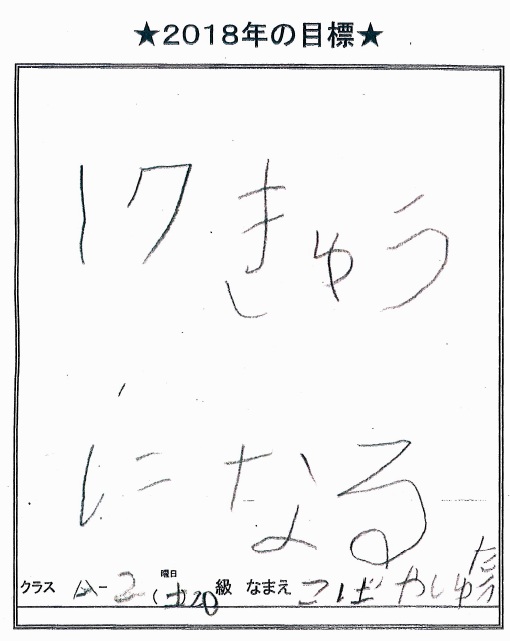 ★2018年の目標★
17きゅう
になる
クラス A-2 曜日 (土)20 級 なまえ こばやしゅう